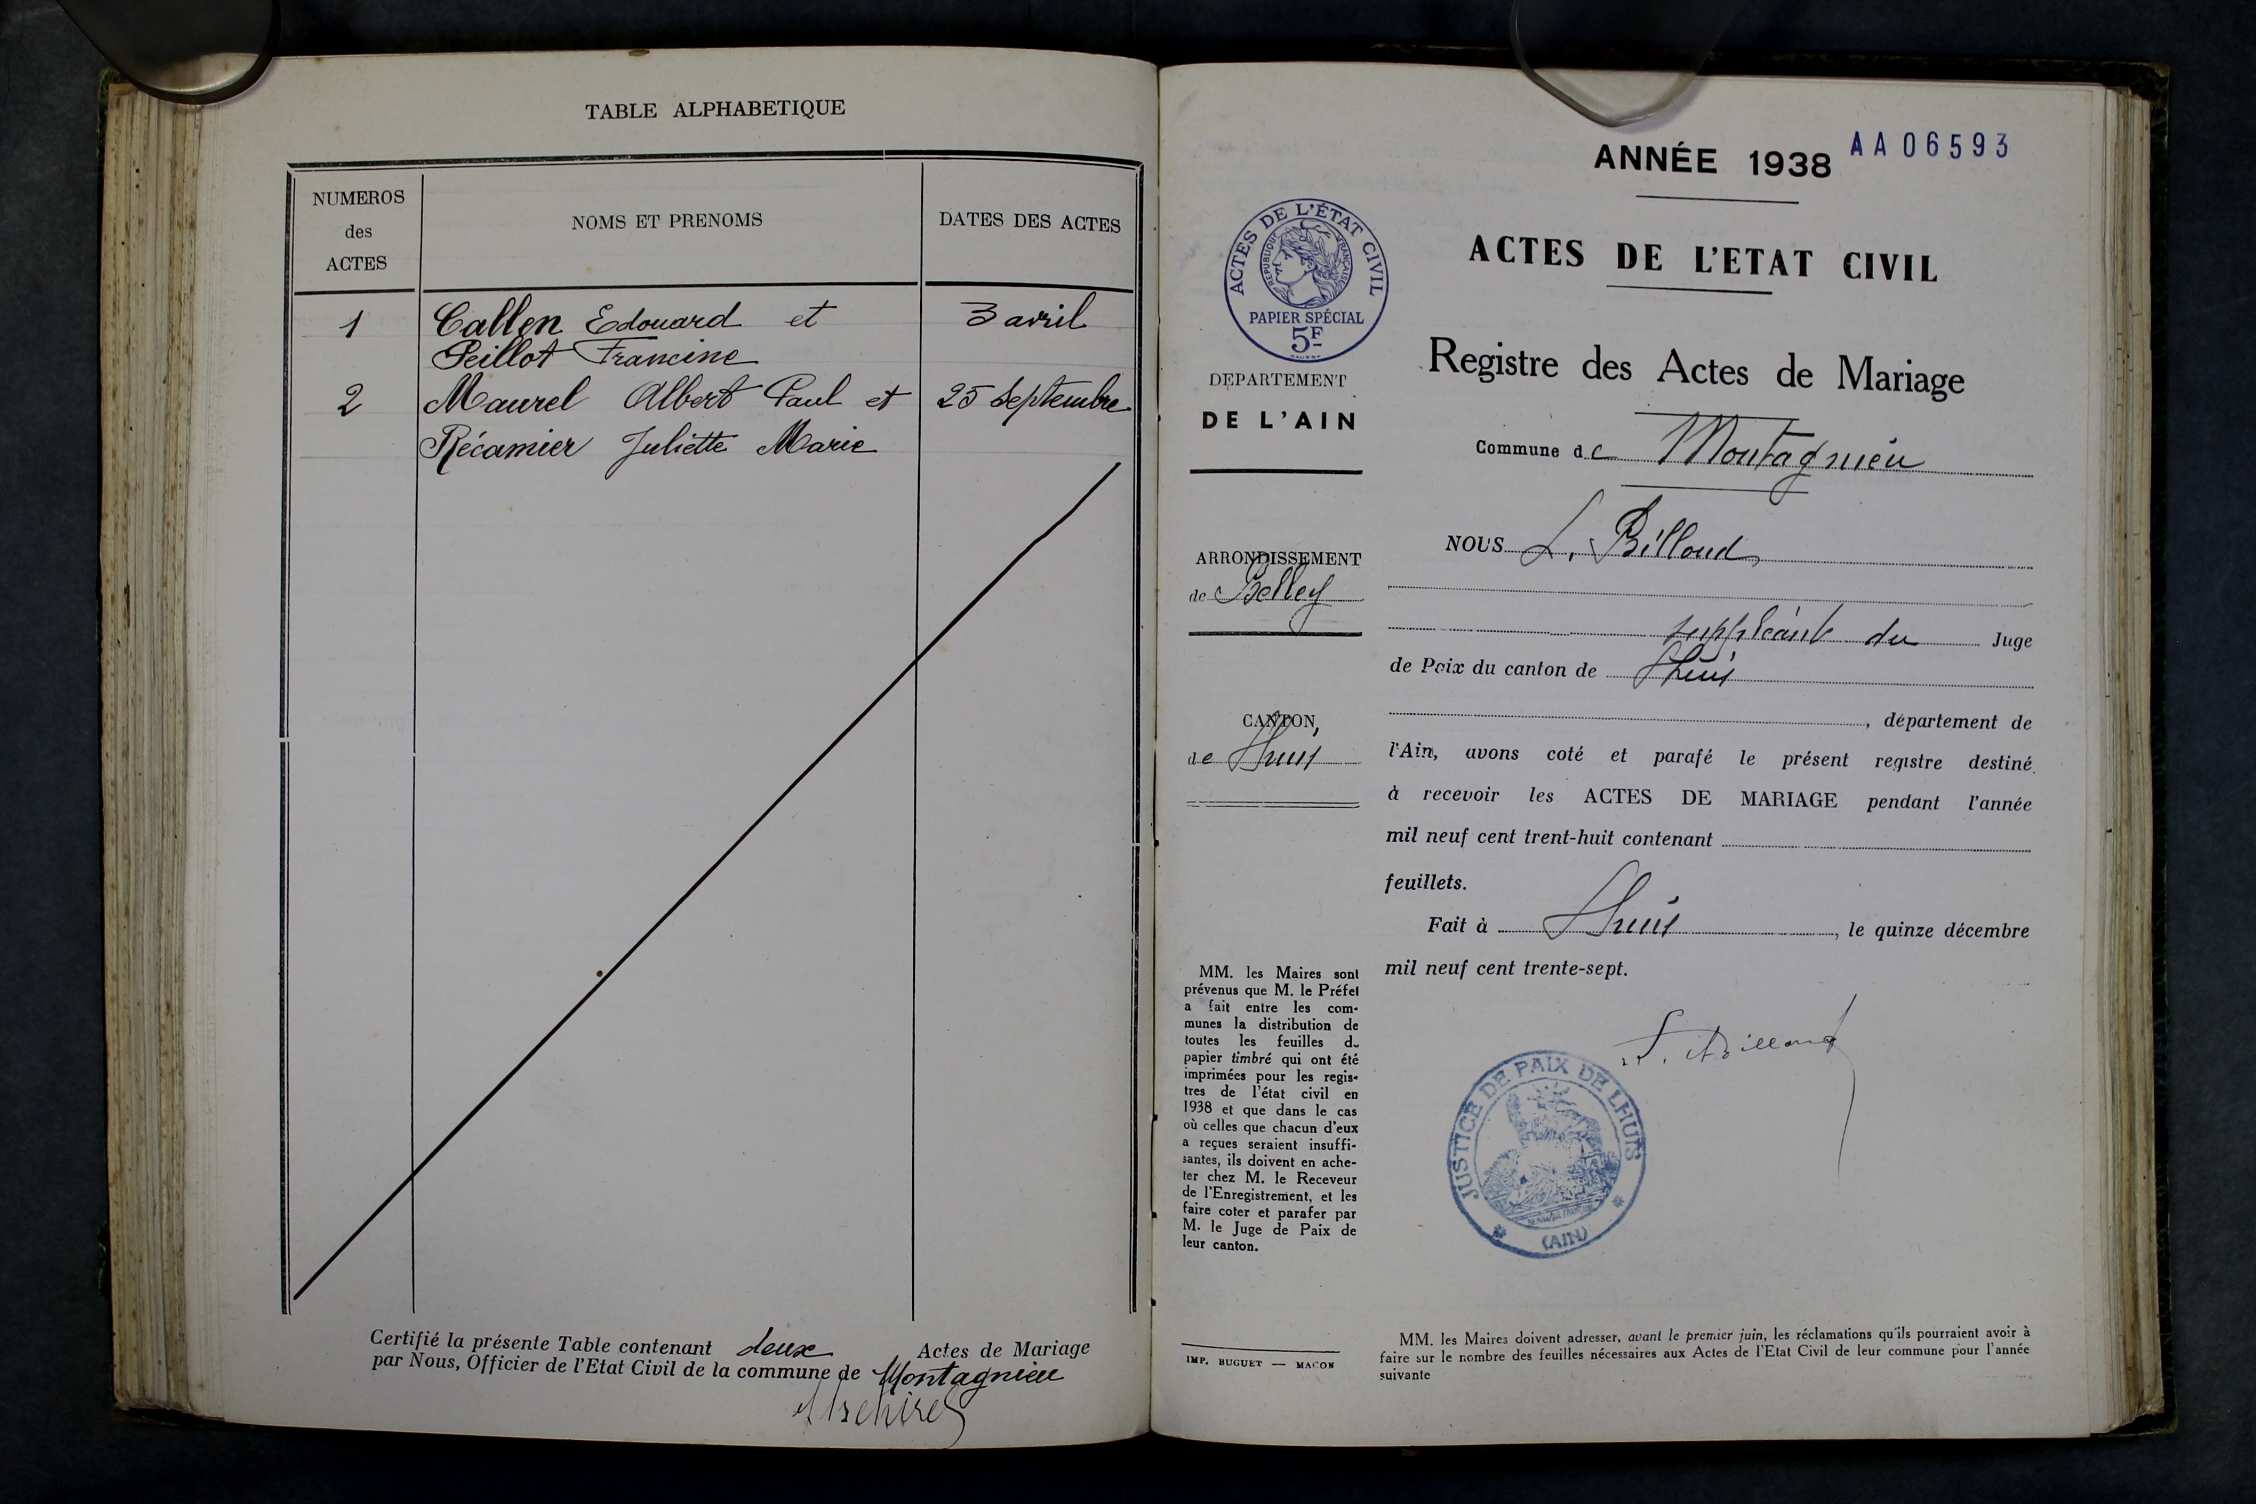 TABLE ALPHABETIQUE
NUMEROS
des
ACTES
NOMS ET PRENOMS
DATES DES ACTES
1
Callen Edouard et
3 avril
Peillot Francine
2
Maurel Albert Paul et
25 Septembre
Récamier Juliette Marie
Certifié la présente Table contenant deux Actes de Mariage
par Nous, Officier de l'Etat Civil de la commune de Montagnieu
ANNÉE 1938
AA06593
ACTES DE L'ÉTAT CIVIL
REPUBLIQUE FRANÇAISE
PAPIER SPÉCIAL
5F
DEPARTEMENT
DE L'AIN
ARRONDISSEMENT
de Belley
CANTON
de Lhuis
MM. les Maires sont
prévenus que M. le Préfet
a fait entre les com-
munes la distribution de
toutes les feuilles du
papier timbré qui ont été
imprimées pour les regis-
tres de l'état civil en
1938 et que dans le cas
où celles que chacun d'eux
a reçues seraient insuffi-
santes, ils doivent en ache-
ter chez M. le Receveur
de l'Enregistrement, et les
faire coter et parafer par
M. le Juge de Paix de
leur canton.
IMP. BUGUET — MACON
ACTES DE L'ETAT CIVIL
Registre des Actes de Mariage
Commune de Montagnieu
NOUS L. Billoud
suppléant du Juge
de Paix du canton de Lhuis
, département de
l'Ain, avons coté et parafé le présent registre destiné
à recevoir les ACTES DE MARIAGE pendant l'année
mil neuf cent trent-huit contenant
feuillets.
Fait à Lhuis, le quinze décembre
mil neuf cent trente-sept.
L. Billoud
JUSTICE DE PAIX DE LHUIS
(AIN)
MM. les Maires doivent adresser, avant le premier juin, les réclamations qu'ils pourraient avoir à
faire sur le nombre des feuilles nécessaires aux Actes de l'Etat Civil de leur commune pour l'année
suivante